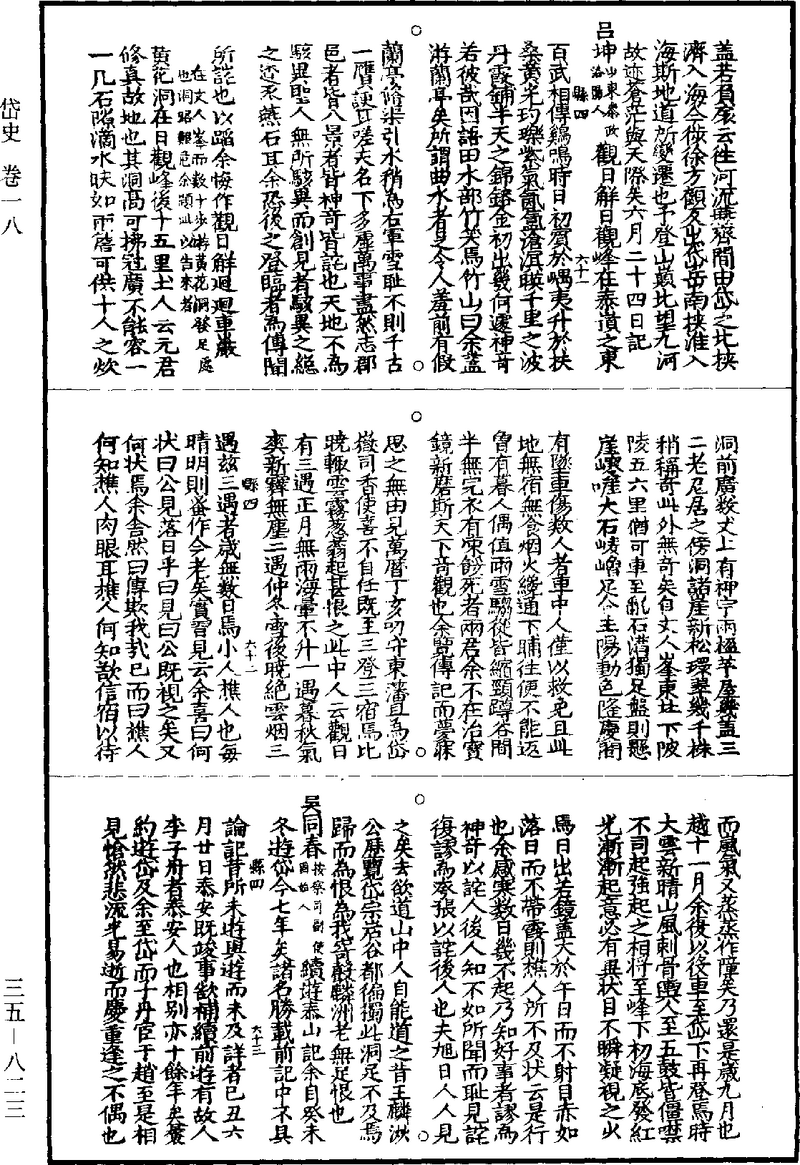 岱史 卷一八
三五—八二三
蓋若貟廒云往河流無齊間由岱之北挾
濟入海今徐徐方顧反出岱岳南挾淮入
海斯地道所變遷也予登山巔北望九河
故迹蒼茫與天際矣六月二十四日記
呂坤山東叅政洛陽人觀日解日觀峰在泰嵿之東
縣四
六十一
百武相傳鷄鳴時日初賓於嵎夷升於扶
桑黃光玓瓅紫氣氤氳滄溟暎千里之波
丹霞鋪半天之錦鎔金初出幾何還神奇
若彼哉因語田木部竹笑馬竹山曰余蓋
游蘭亭矣所謂曲水者乏令人羞前有假
蘭亭脩渠引水稍為右軍雪耻不則千古
一贋諛耳嗟夫名下多虛萬事盡然志郡
邑者皆八景者皆神奇皆詫也天地不為
駭異聖人無所駭異而創見者駭異之絕
之遼豕燕石耳余恐後之登臨者為傳聞
所詫也以蹈余悔作觀日解迴迴車巖
在丈人峯而數十步將黃花洞發足處
也洞路艱危余題此以告來者
黃花洞在日觀峰後十五里土人云元君
修真故地也其洞高可拂冠廣不能容一
一几石隙滴水昧如雨簷可供十人之炊
洞前廣数丈上有神宇兩楹芊屋幾蓋三
二老尼居之傍洞諸崖新松環翠幾千株
稍稱奇此外無奇矣自丈人峯東北下陂
陵五六里猶可車至亂石溝獨足盤則懸
崖巉唑大石崚嶒足令王陽動色隆慶閣
有墜車傷数人者車中人僅以救免且此
地無宿無食烟火縷通下晡往便不能迈
魯有暮人偶值雨雪騶從皆縮頸蹲谷間
半無完衣有凍餓死者兩君余不在冶寶
鏡新磨斯天下奇觀也余覽傳記而夢寐
思之無由見萬曆丁亥叨守東藩且為岱
嶽司香使喜不自任既至三登三宿焉比
曉輒雲霧葱蓊起甚恨之此中人云觀日
有三遇正月無雨海暈不升一遇暮秋氣
爽新霽無塵二遇仲冬雪後曉絕雲烟三
縣四
六十二
遇玆三遇者歲無数日焉小人樵人也每
晴明則蚤作今老矣實習見云余喜曰何
狀曰公見落日乎曰見曰公既視之矣又
何狀焉余舍然曰傳欺我哉已而曰樵人
何知樵人肉眼耳樵人何知敨信宿以待
而風氣又蒸蒸作障矣乃還是歲九月也
越十一月余復以役車至岱下再登焉時
大雪新晴山風剌骨輿人至五鼓皆僵噤
不司起強起之相將至峰下初海底發紅
光漸漸起意必有異狀目不瞬凝視之火
焉日出若鏡蓋大於午日而不射目赤如
落日而不帶霞則樵人所不及状云是行
也余感寒数日幾不起乃知好事者謬為
神奇以詫人後人知不如所聞而耻見詫
復謬為夸張以詫後人也夫旭日人人見
之矣去欲道山中人自能道之昔王麟洲
公歷覽岱宗岩谷都徧獨此洞足不及焉
歸而為恨為我寄聲麟洲老無足恨也
吳同春按察司副使固始人續遊泰山記余自癸未
冬遊岱今七年矣諸名勝載前記中不具
縣四
六十三
論記昔所未遊與遊而未及詳者己丑六
月廿日泰安既竣事欲補續前遊有故人
李子舟者泰安人也相别亦十餘年矣曩
約遊岱及余至岱而子丹官于趙至是相
見愴然悲流光易逝而慶重逢之不偶也